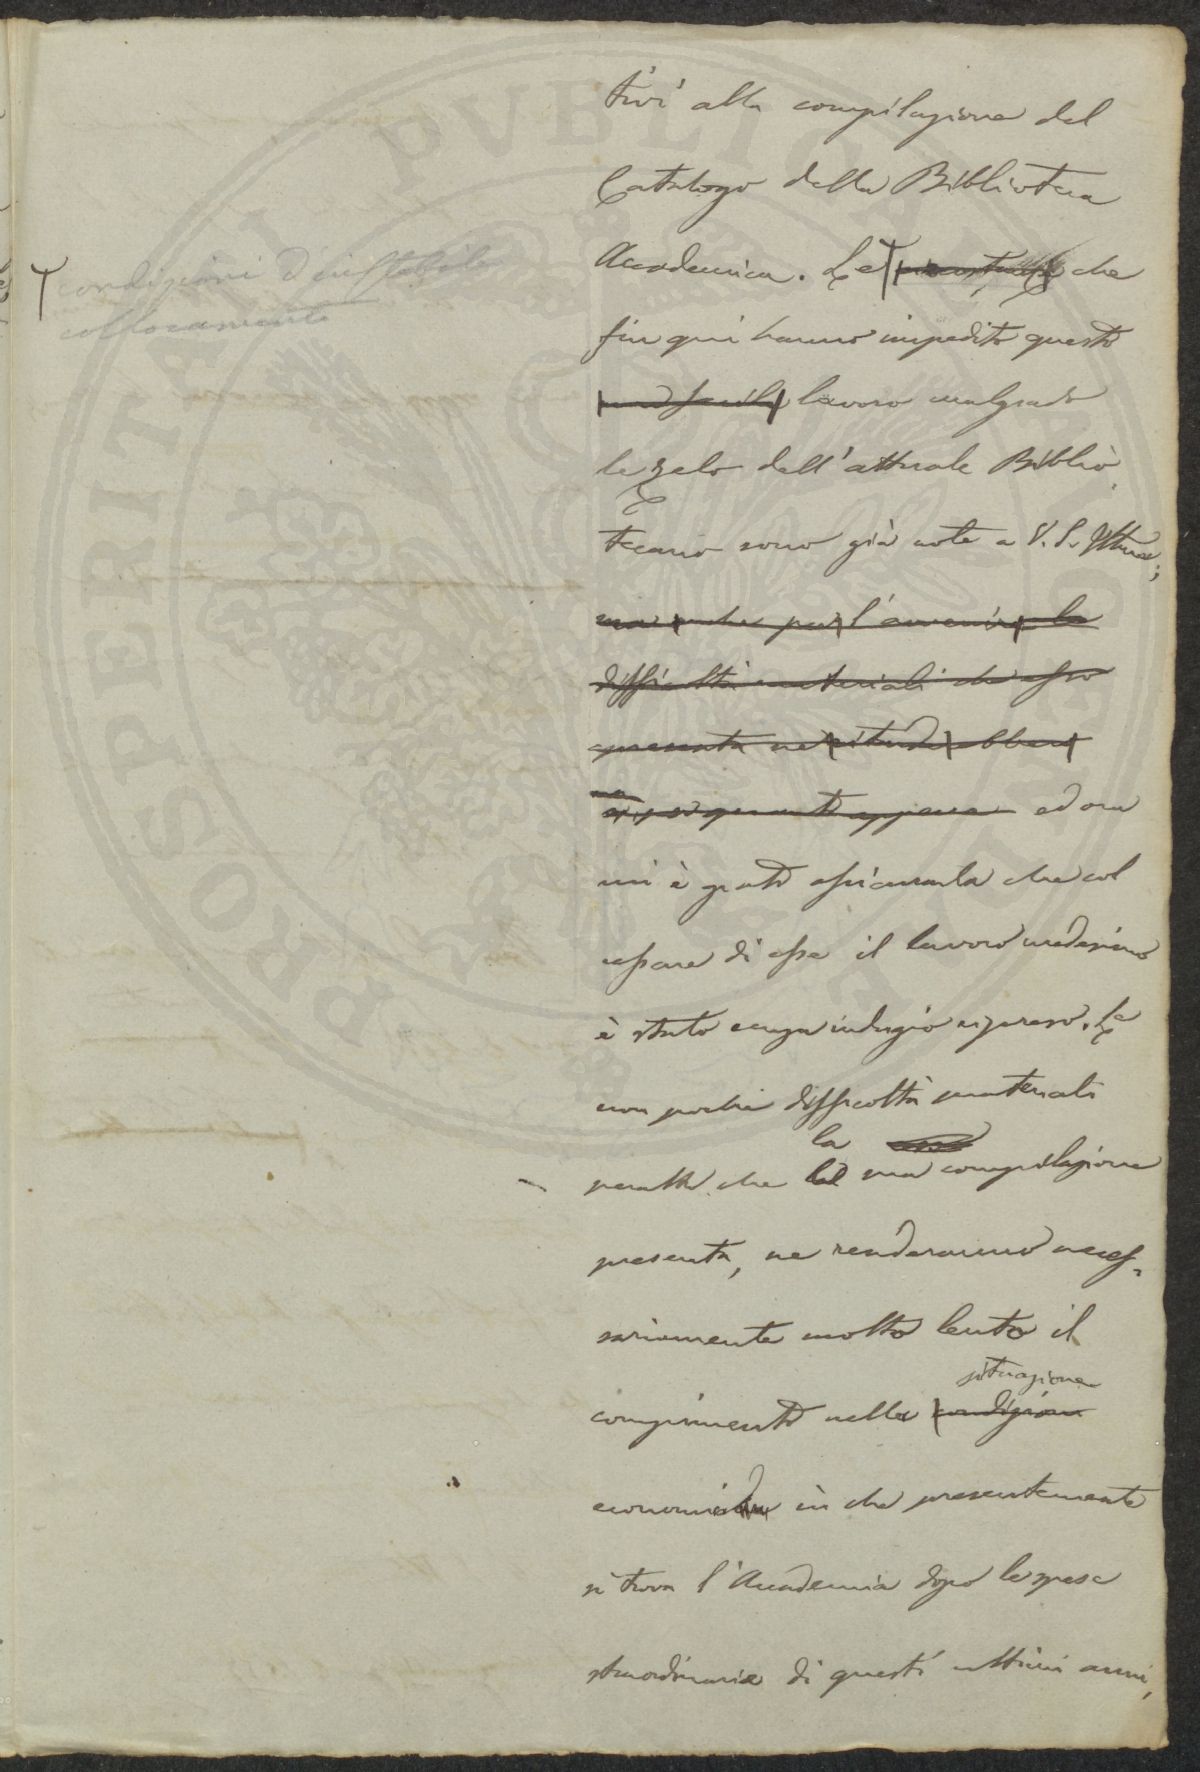 tivi alla compilazione del
Catalogo della Biblioteca
Accademica. Le che
condizioni d'instabile
collocamento
fin qui hanno impedito questo
lavoro malgrado
lo zelo dell'attuale Biblio
tecario sono già note a V. S. Illma;
ma anche per l'avvenire le
difficoltà materiali che esso
presenta ne
ed ora
mi è grato assicurarla che col
cessare di esse il lavoro medesimo
è stato senza indugio ripreso. Le
non poche difficoltà materiali
la
però che la sua compilazione
presenta, ne renderanno neces-
sariamente molto lento il
situazione
compimento nella condizione
economica in che presentemente
si trova l'Accademia dopo le spese
straordinarie di questi ultimi anni,
PROSPERITATI PVBLICAE